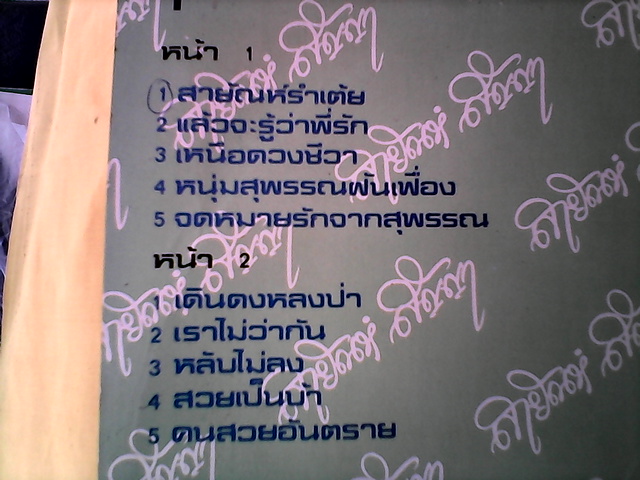 หน้า 1
1 สายัณห์รำเต้ย
2 แล้วจะรู้ว่าพี่รัก
3 เหนือดวงชีวา
4 หนุ่มสุพรรณฝันเฟื่อง
5 จดหมายรักจากสุพรรณ
หน้า 2
1 เดินดงหลงป่า
2 เราไม่ว่ากัน
3 หลับไม่ลง
4 สวยเป็นบ้า
5 คนสวยอันตราย
สายัณห์ สัญญา
สายัณห์ สัญญา
สายัณห์ สัญญา
สายัณห์ สัญญา